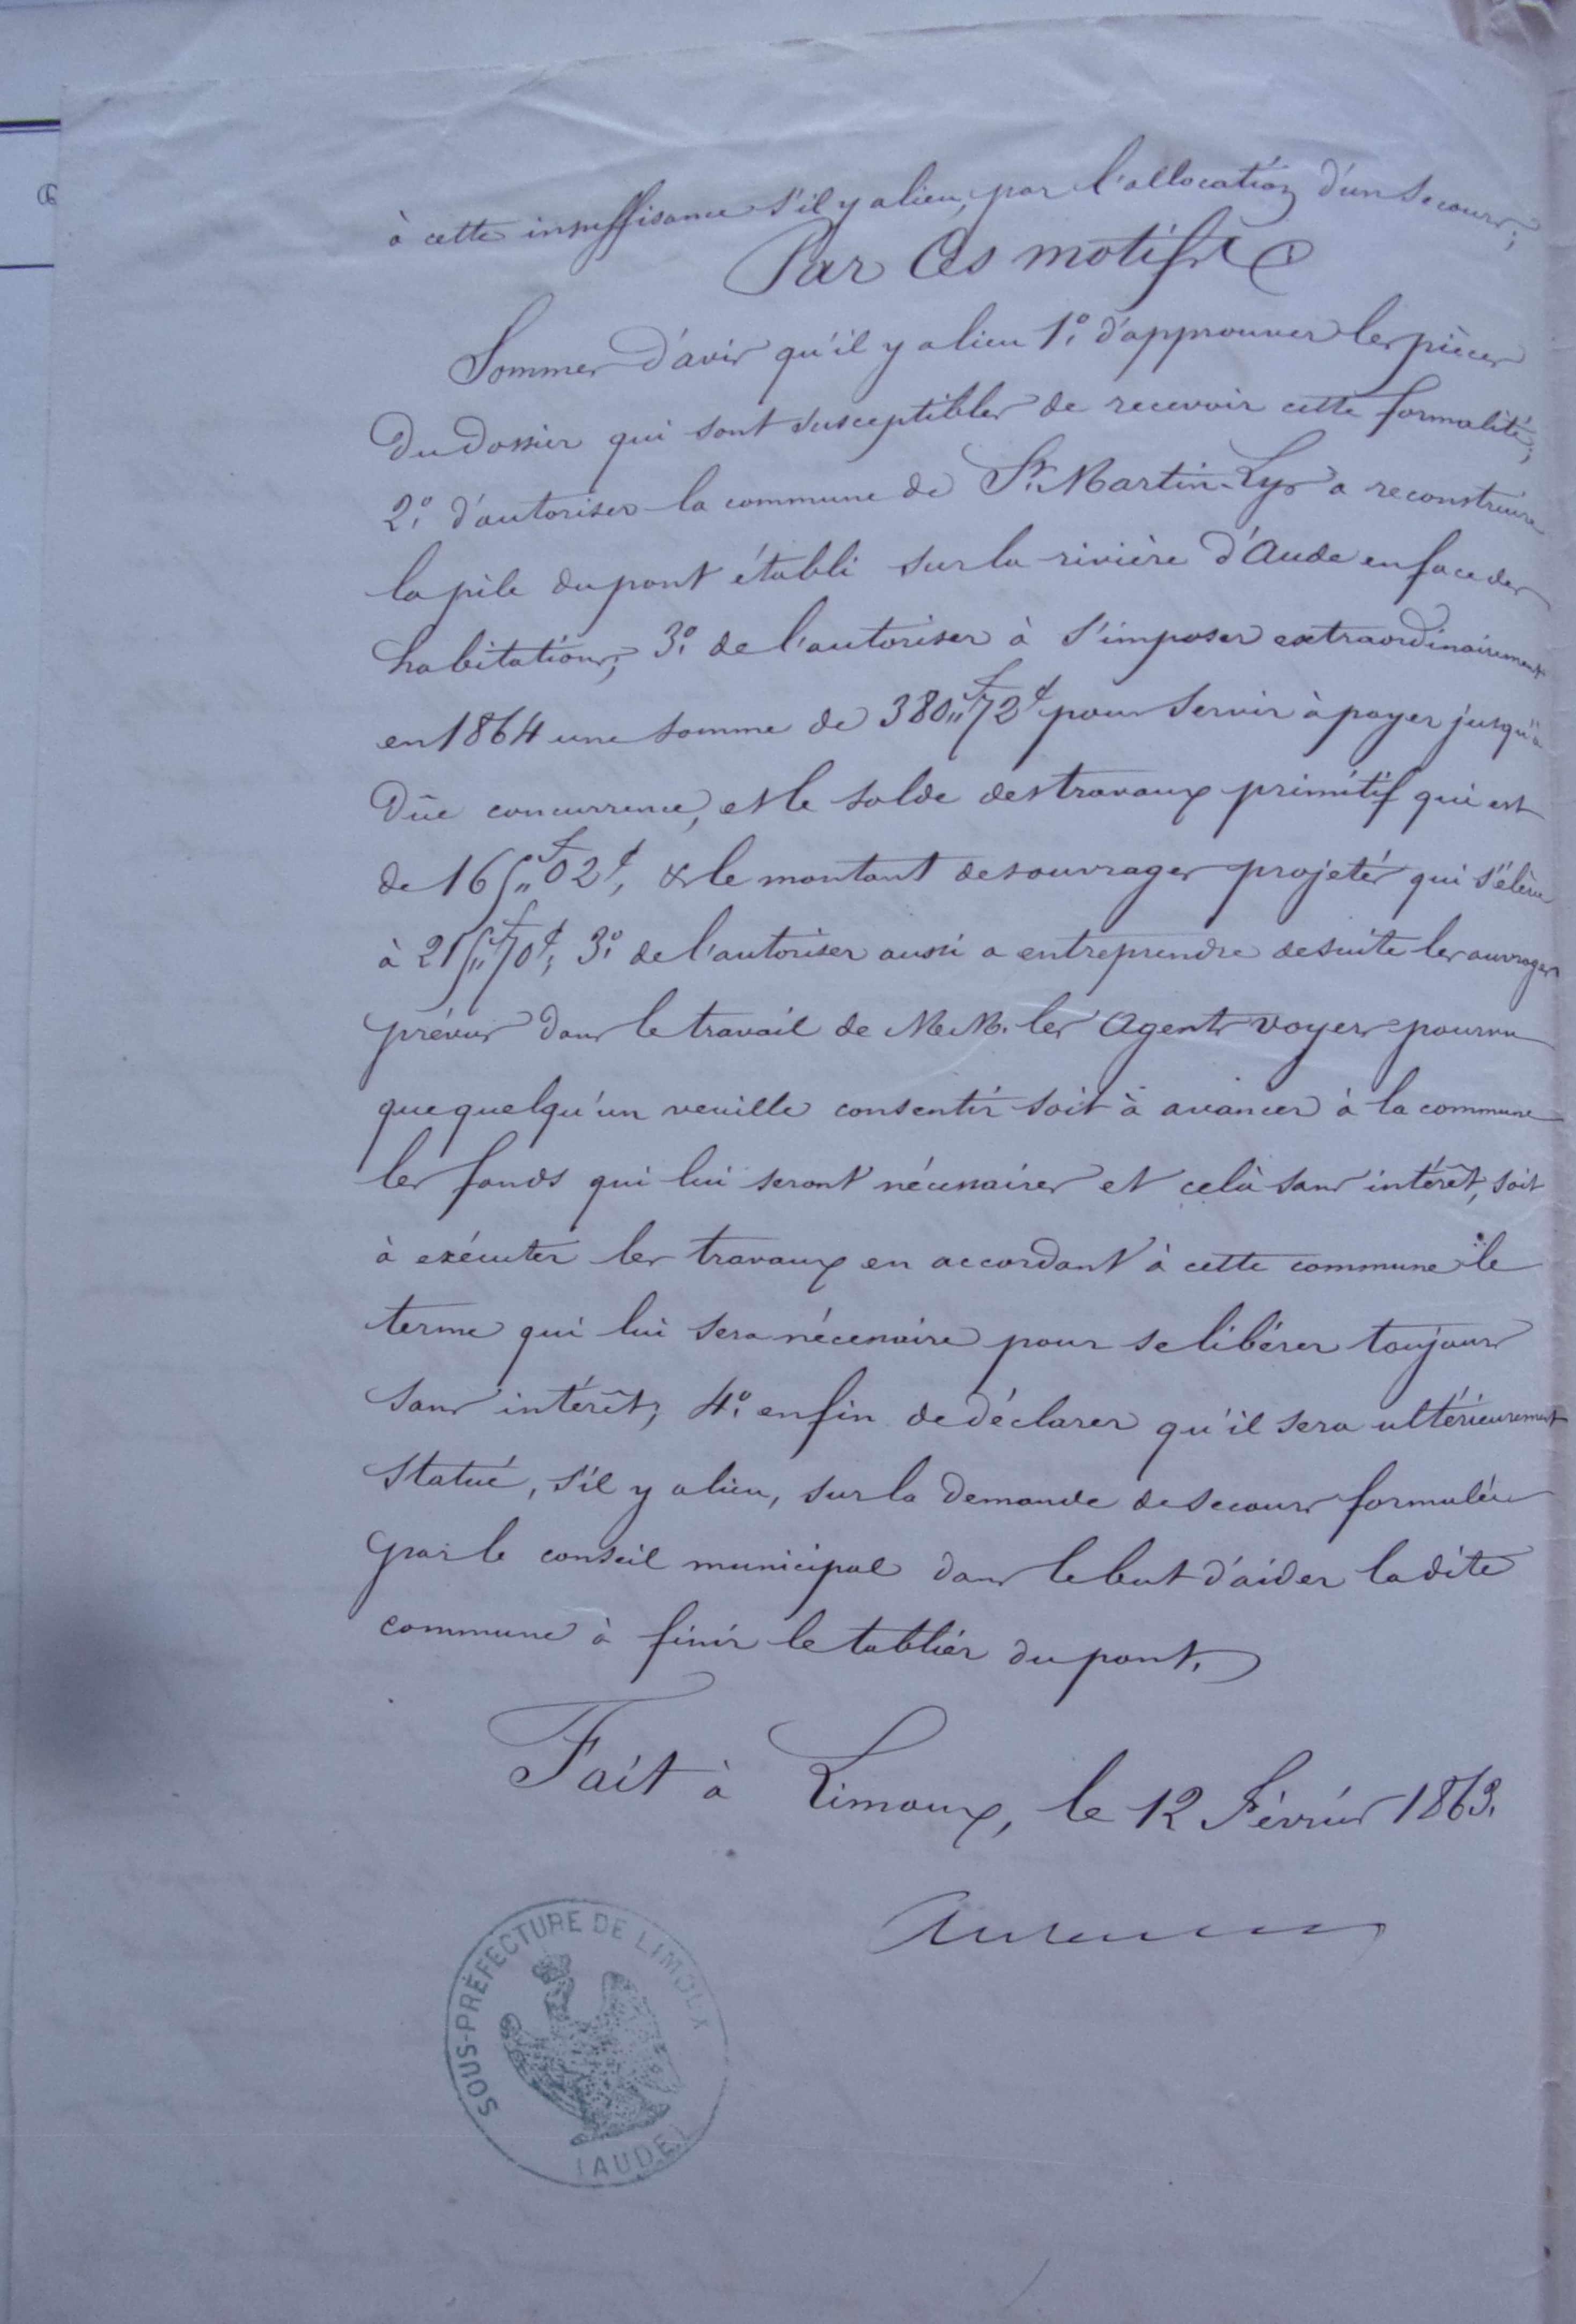 à cette insuffisance s'il y a lieu, par l'allocation d'un secours;
Par Ces motifs
Sommes d'avis qu'il y a lieu 1.° d'approuver les pièces
du dossier qui sont susceptibles de recevoir cette formalité;
2.° d'autoriser la commune de St. Martin-Lys a reconstruire
la pile du pont établi sur la rivière d'Aude en face des
habitations; 3.° de l'autoriser à s'imposer extraordinairement
en 1864 une somme de 380,,f72c pour servir à payer jusqu'à
dûe concurrence, et le solde des travaux primitif qui est
de 165,,f02c, & le montant des ouvrages projetés qui s'élève
à 215,,f70c; 3.° de l'autoriser aussi a entreprendre de suite les ouvrages
prévus dans le travail de M.M. les Agents voyers pourvu
que quelqu'un veuille consentir soit à avancer à la commune
les fonds qui lui seront nécessaires et celà sans intérêt, soit
à exécuter les travaux en accordant à cette commune le
terme qui lui sera nécessaire pour se libérer toujours
sans intérêt; 4.° enfin de déclarer qu'il sera ultérieurement
statué, s'il y a lieu, sur la demande de secours formulée
par le conseil municipal dans le but d'aider la dite
commune à finir le tablier du pont.
Fait à Limoux, le 12 Février 1863.
SOUS-PRÉFECTURE DE LIMOUX
(AUDE)